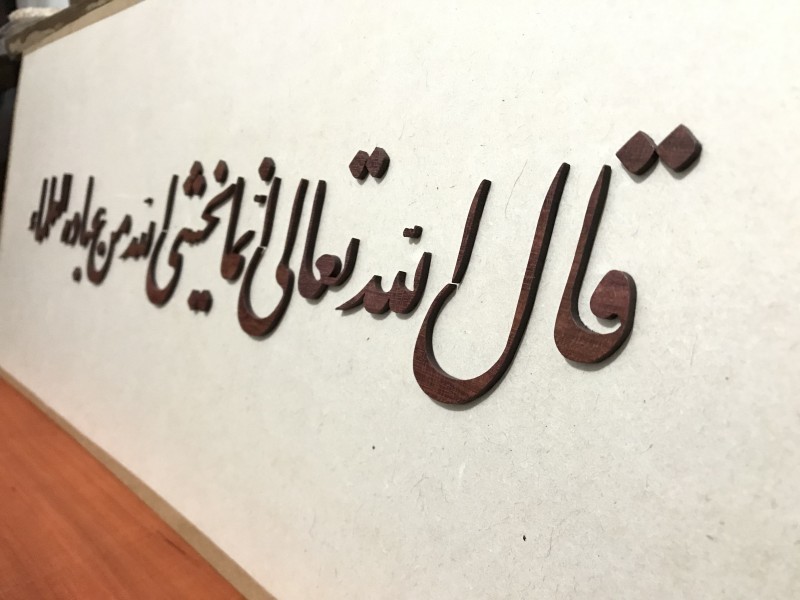 قال الله تعالی انما یخشی الله من عباده العلماء